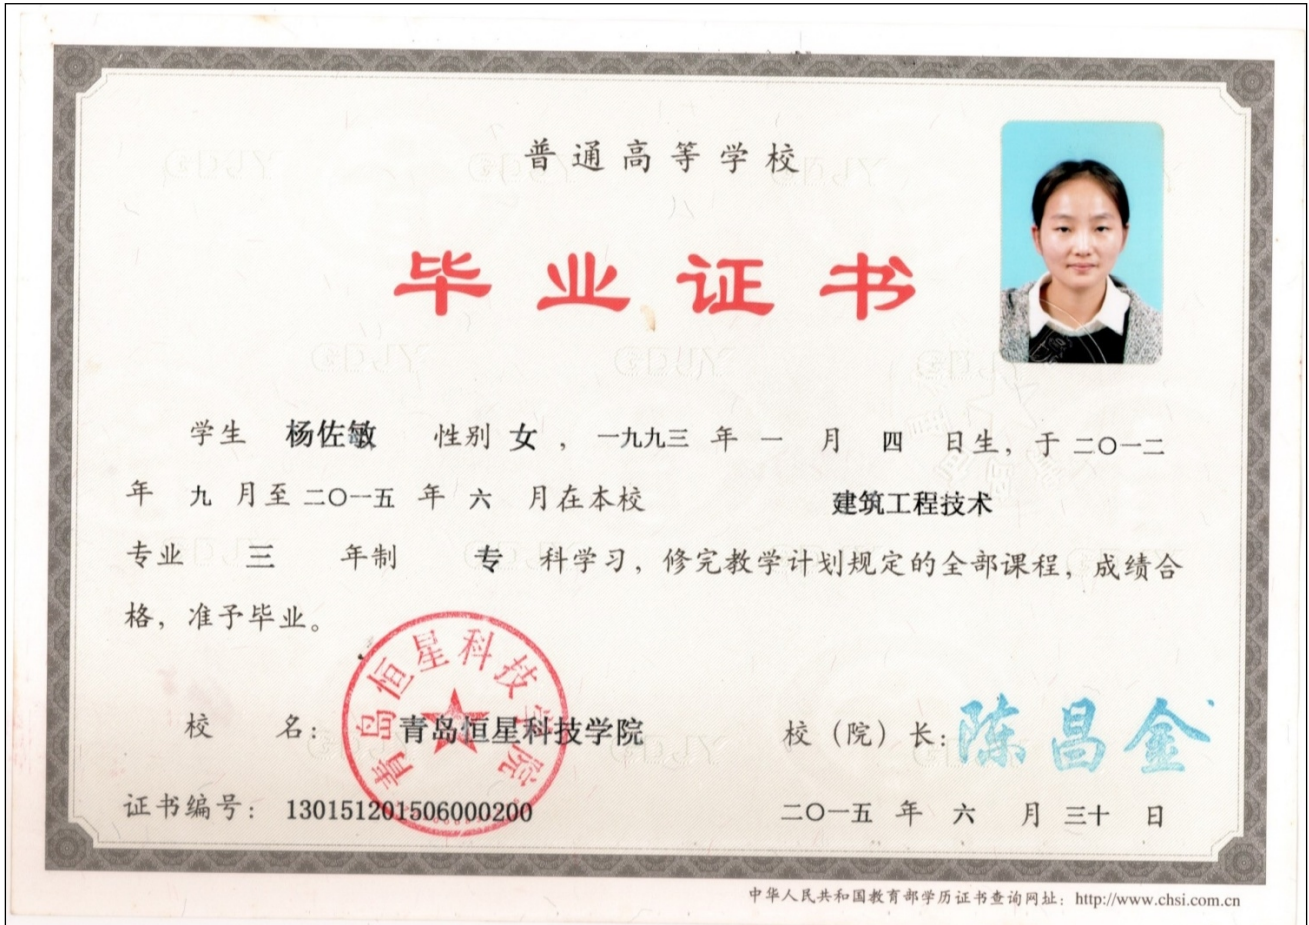 普通高等学校
毕业证书
学生 杨佐敏 性别 女 ，一九九三 年 一 月 四 日生，于 二〇一二
年 九 月至 二〇一五 年 六 月在本校 建筑工程技术
专业 三 年制 专 科学习，修完教学计划规定的全部课程，成绩合
格，准予毕业。
青岛恒星科技学院
校 名： 青岛恒星科技学院 校（院）长： 陈昌金
证书编号： 130151201506000200 二〇一五 年 六 月 三十 日
中华人民共和国教育部学历证书查询网址：http://www.chsi.com.cn
GDJY
GDJY
GDJY
GDJY
GDJY
GDJY